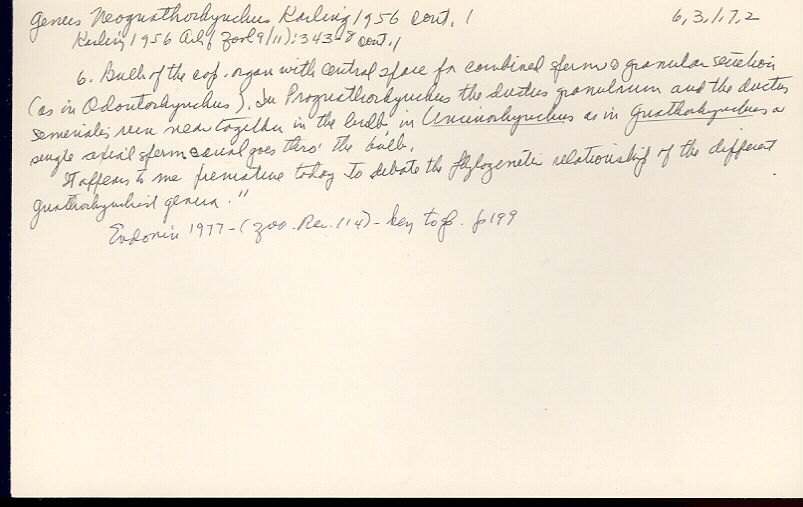 Genus Neognathorhynchus Karling 1956 cont. 1 6, 3, 1, 7, 2
Karling 1956 Ark f Zool 9(11): 343-8 cont. 1
6. Bulb of the cop. organ with central space for combined sperm & granular secretion
(as in Odontorhynchus). In Prognathorhynchus the ductus granulorum and the ductus
seminalis run near together in the bulb, in Uncinorhynchus as in Gnathorhynchus a
single axial sperm canal goes thro' the bulb.
It appears to me premature today to debate the phylogenetic relationship of the different
gnathorhynchid genera."
Evdonin 1977 - (Zoo. Rec. 114) - key to sp. p 199